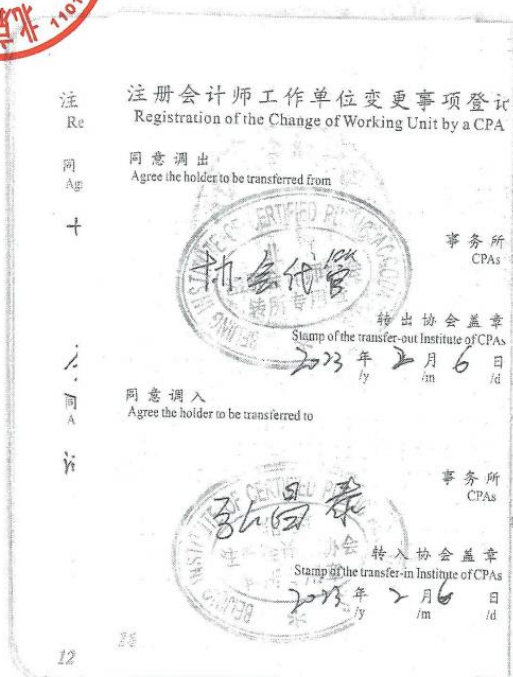 1101
注册会计师工作单位变更事项登记
Registration of the Change of Working Unit by a CPA
注
Re
同意调出
Agree the holder to be transferred from
同
Ag
BEIJING INSTITUTE OF CERTIFIED PUBLIC ACCOU
协会代管
事务所
CPAs
转所专用
转出协会盖章
Stamp of the transfer-out Institute of CPAs
2023年2月6日
/y /m /d
同意调入
Agree the holder to be transferred to
同
A
事务所
CPAs
转入协会盖章
Stamp of the transfer-in Institute of CPAs
2023年2月6日
/y /m /d
12